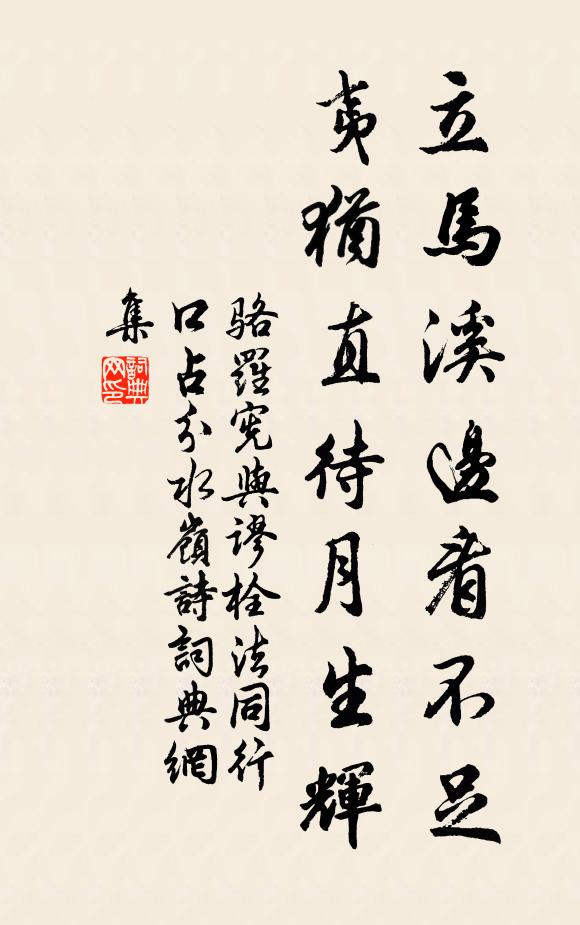 立馬溪邊看不足
夷猶直待月生輝
駱羅宪與謬栓法同行
口占分水嶺詩詞典網
集
詞典
网印